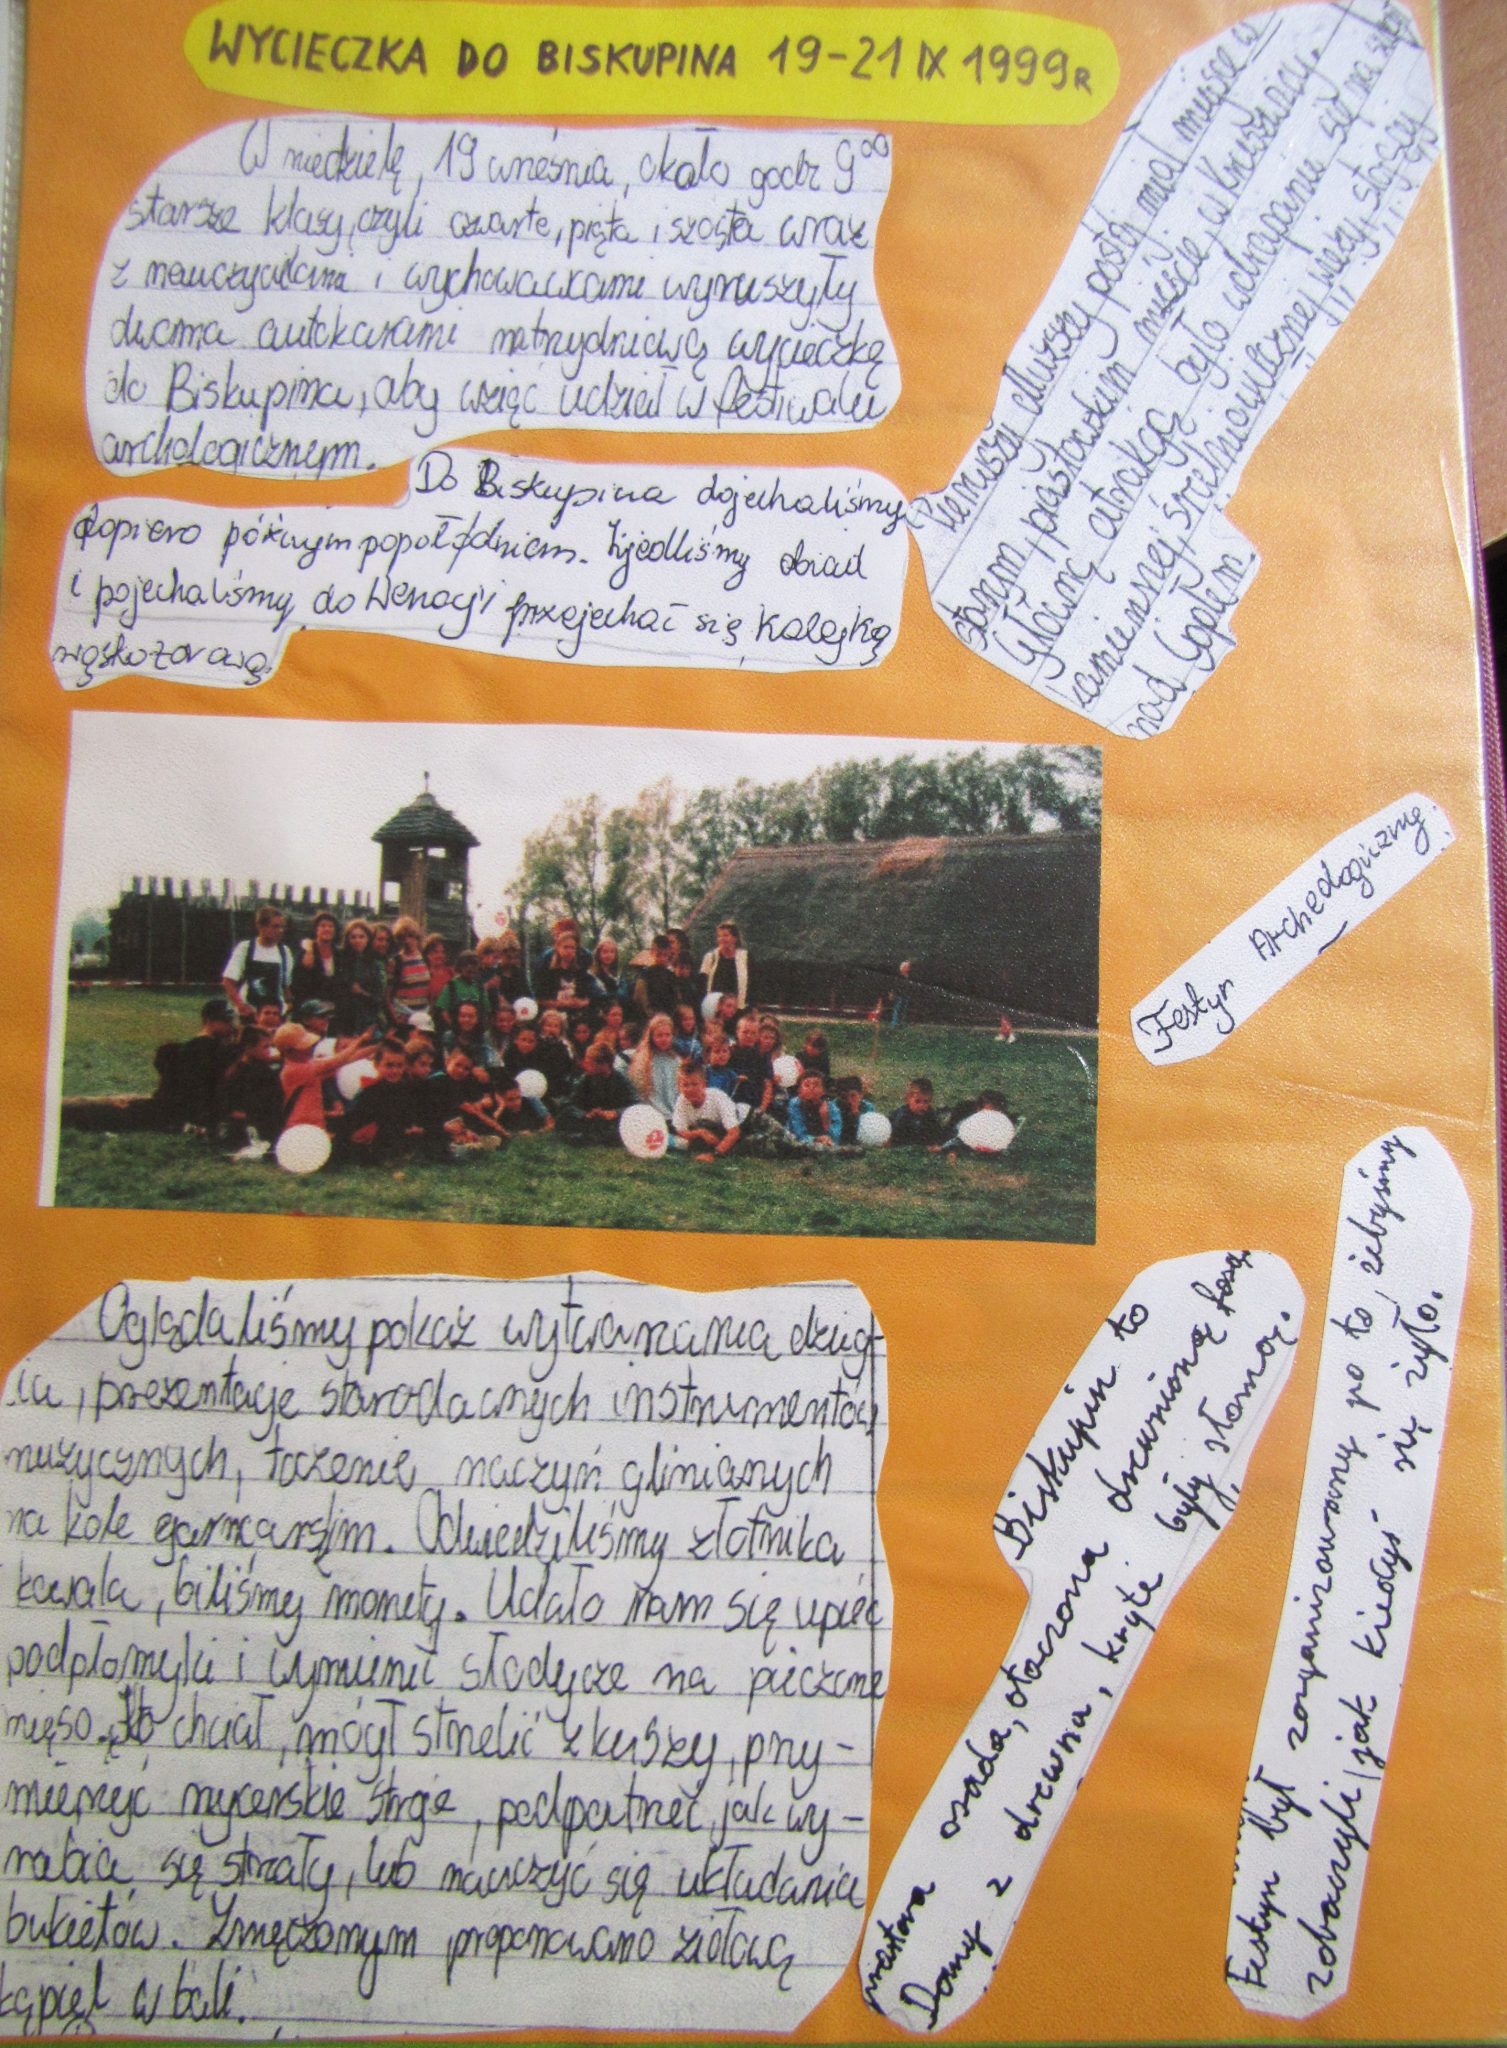 WYCIECZKA DO BISKUPINA 19-21 IX 1999R
W niedzielę, 19 września, około godz 9⁰⁰
starsze klasy, czyli czwarte, piąta i szósta wraz
z nauczycielami i wychowawczami wyruszyły
dwoma autokarami na trzydniową wycieczkę
do Biskupina, aby wziąć udział w festiwalu
archologicznym.
Do Biskupina dojechaliśmy
dopiero późnym popołudniem. Zjedliśmy obiad
i pojechaliśmy do Wenecji przejechać się kolejką
wąskozorową.
Pierwszy dłuższy postój miał miejsce w
starym, piastowskim mieście, w Kruszwicy.
Główną atrakcją było wdrapanie się na szczyt
kamiennej, średniowiecznej wieży, stojącej
nad Gopłem.
Festyn Archeologiczny.
Oglądaliśmy pokaz wytwarzania dzieg-
ciu, prezentacje starodawnych instrumentów
muzycznych, toczenie naczyń glinianych
na kole garncarskim. Odwiedziliśmy złotnika
kowala, biliśmy monety. Udało nam się upiec
podpłomyki i wymienić słodycze na pieczone
mięso. Kto chciał, mógł strzelić z kuszy, przy-
mierzyć rycerskie stroje, podpatrzeć, jak wy-
rabia się strzały, lub nauczyć się układania
bukietów. Zmęczonym proponowano ziołową
kąpiel w bali.
Biskupin to
prastara osada, otoczona drewnianą fosą.
Domy z drewna, kryte były słomą.
Festyn był zorganizowany po to, żebyśmy
zobaczyli, jak kiedyś się żyło.